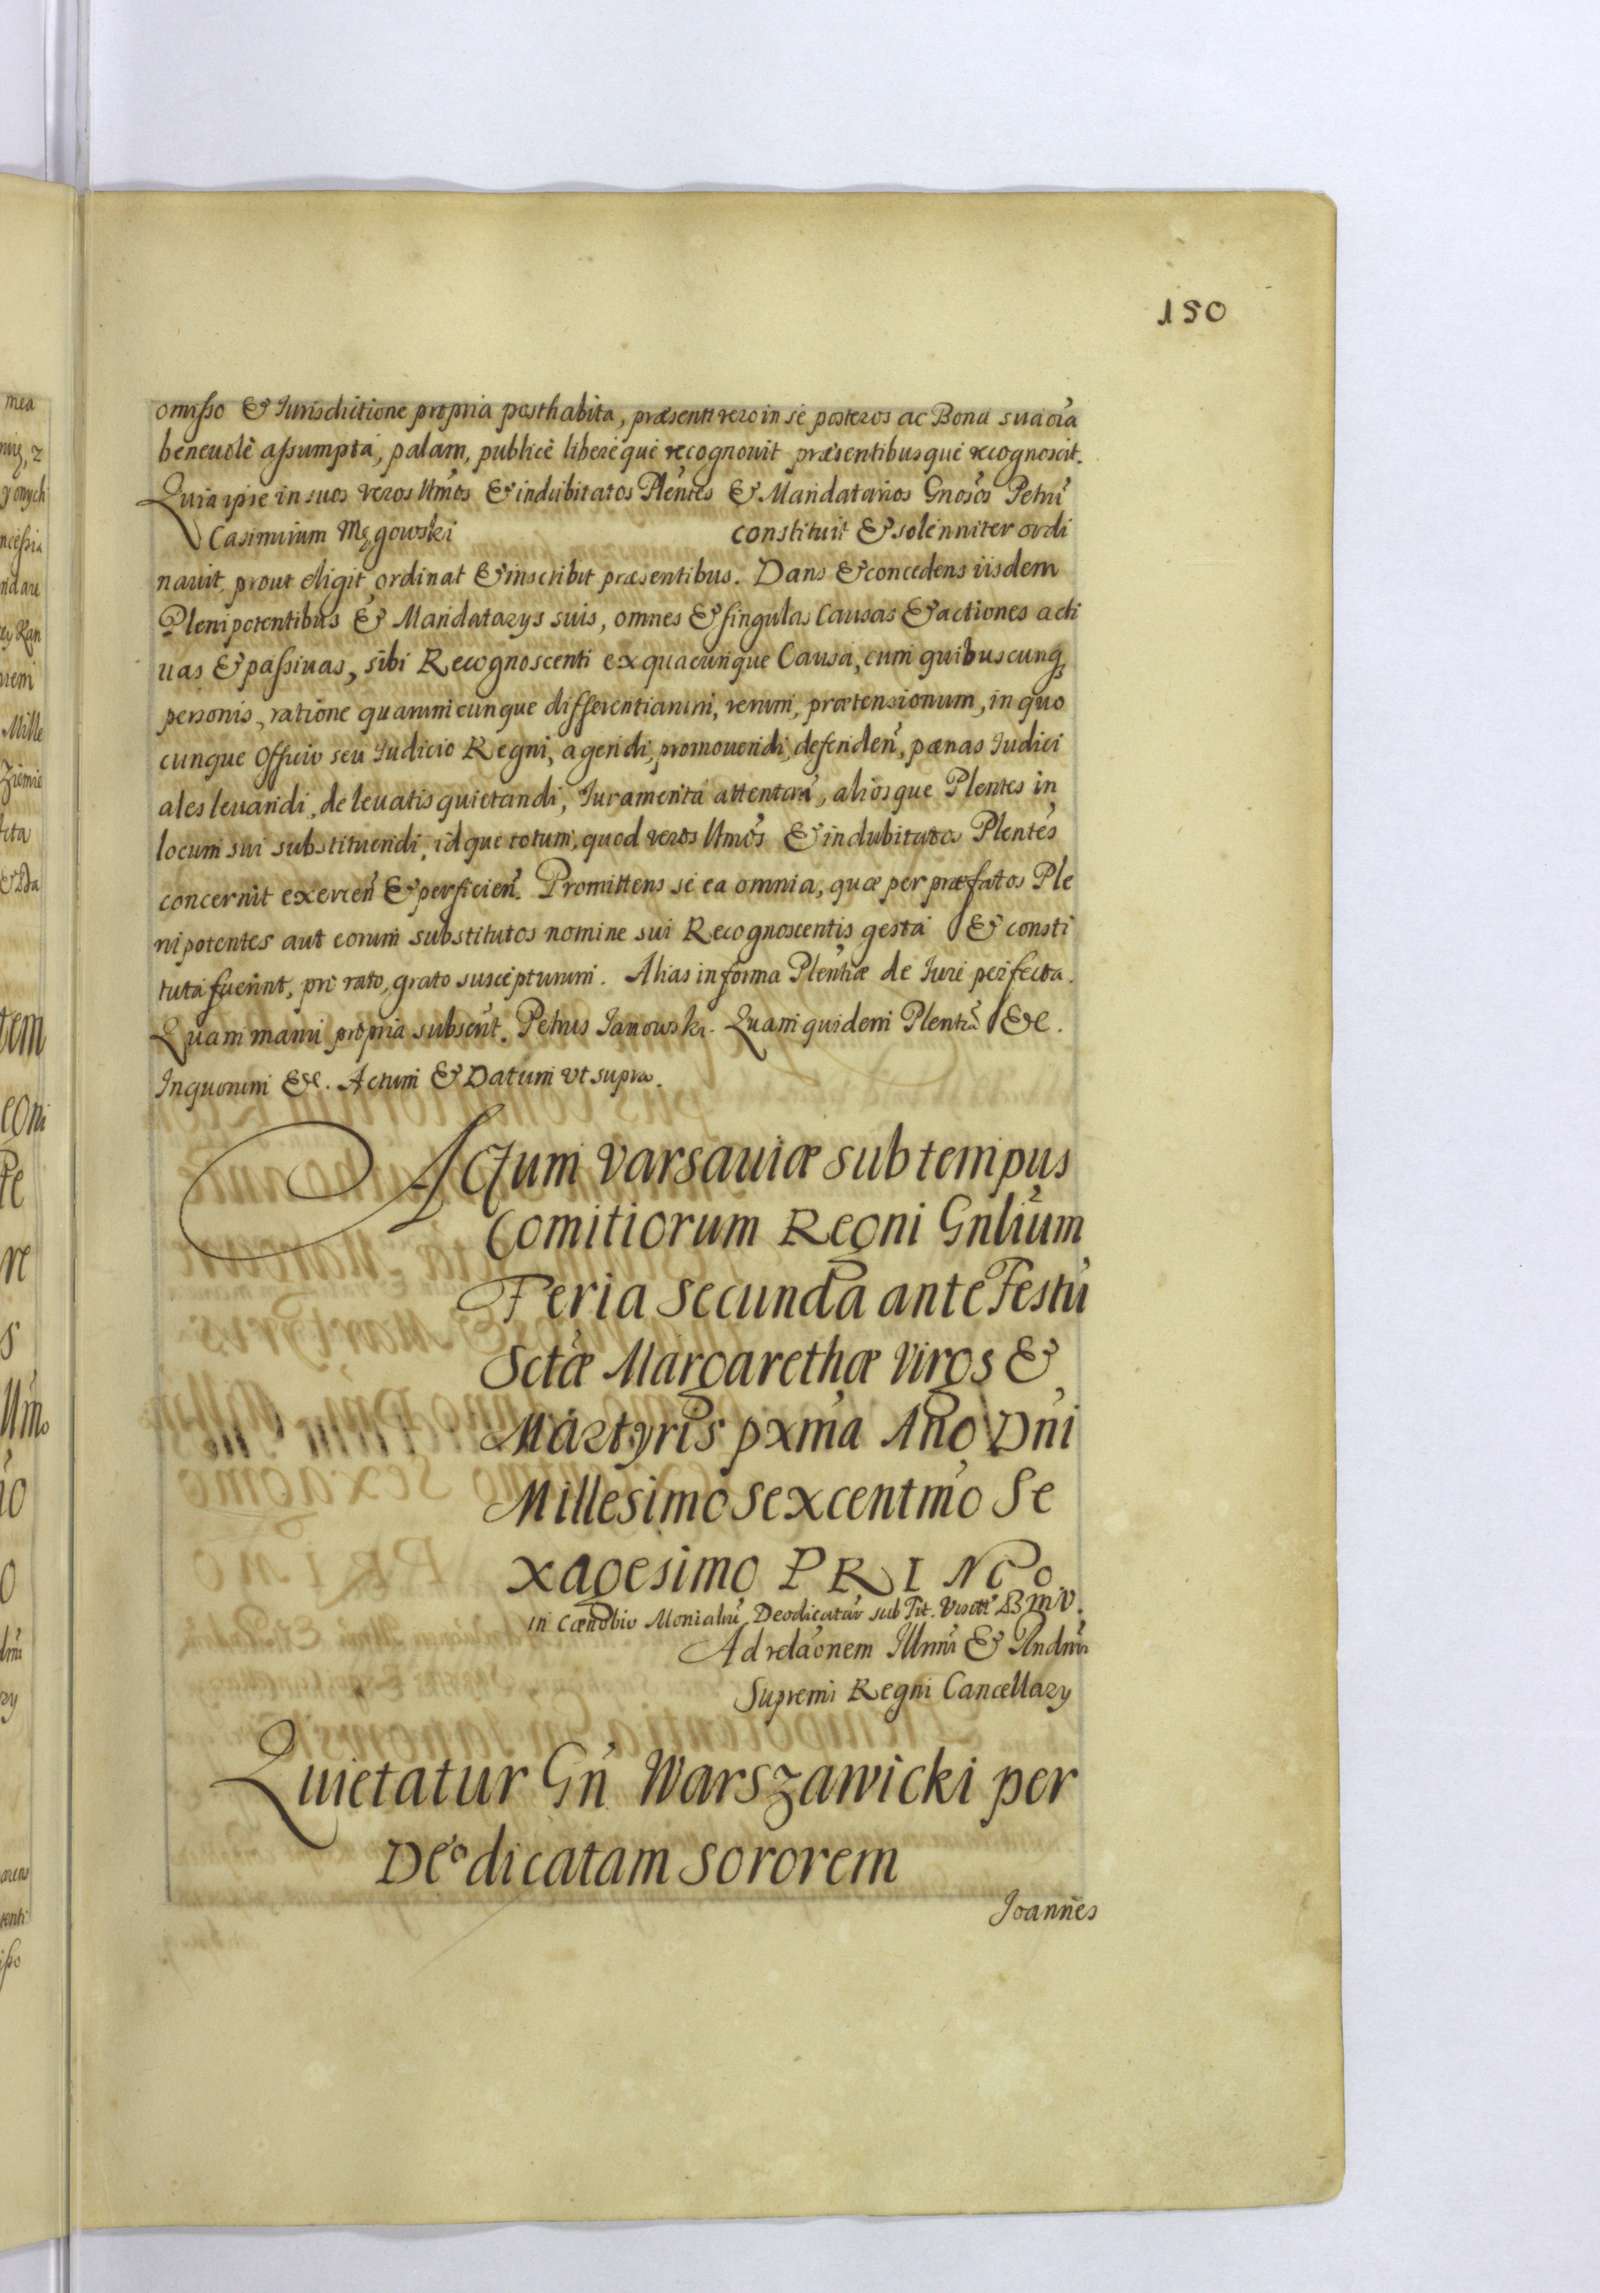 150
omisso & Iurisdictione propria posthabita, præsenti vero in se posteros ac Bona sua oĩa
beneuolè assumpta, palam, publicè liberè què recognouit præsentibusquè recognoscit.
Quia ipse in suos veros Ltmõs & indubitatos Plentes & Mandatarios Gnosõs Petrũ
Casimirum Męgowski constituit & solenniter ordi
nauit, prout eligit ordinat & inscribit præsentibus. Dans & concedens iisdem
Plenipotentibus & Mandatarys suis, omnes & singulas Causas & actiones acti
uas & passiuas, sibi Recognoscenti ex quacunque Causa, cum quibuscunq
personis, ratione quarumcunque differentiarum, rerum, prætensionum, in quo
cunque Officio seu Iudicio Regni, agendi, promouendi, defendeñ, pænas Iudici
ales leuandi, de leuatis quietandi, Iuramenta attentañ, aliosque Plentes in
locum sui substituendi, idque totum, quod veros Ltmõs & indubitatos Plentes
concernit exerceñ & perficieñ. Promittens se ea omnia, quæ per præfatos Ple
nipotentes aut eorum substitutos nomine sui Recognoscentis gesta & consti
tuta fuerint, pro rato, grato suscepturum. Alias in forma Plentiæ de Iure perfecta.
Quam manu propria subscrit. Petrus Janowski. Quam quidem Plentiã &c.
In quorum &c. Actum & Datum vt supra.
Actum Varsauiæ sub tempus
Comitiorum Regni Gnlium
Feria Secunda ante Festũ
Sctæ Margarethæ Virgs &
Martyris pxma Año Dñi
Millesimo Sexcentmo Se
xagesimo PRIMo
in Cænobio Monialiũ Deodicatarũ sub Tit. Visittis B M V.
Ad relãonem Illmi & Rndmi
Supremi Regni Cancellary
Quietatur Gñ Warszawicki per
Deodicatam Sororem
Joannes